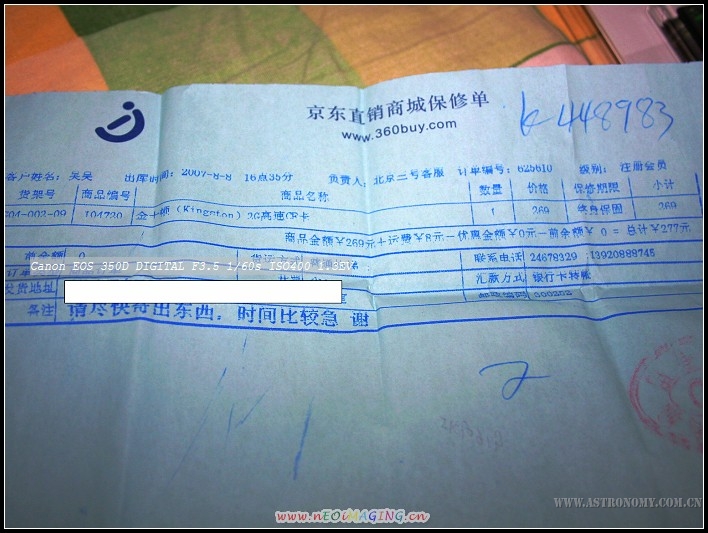 京东直销商城保修单
www.360buy.com
k-448983
客户姓名：吴昊 出库时间：2007-8-8 16点35分 负责人：北京二号客服 订单编号：625610 级别：注册会员
货架号 商品编号 商品名称 数量 价格 保修期限 小计
-002-09 104720 金士顿（Kingston）2G高速CF卡 1 269 终身保固 269
商品金额￥269元＋运费￥8元－优惠金额￥0元－前余额￥ 0 = 总计￥277元
前余额 0 货运方式 联系电话 24678329 13920888745
Canon EOS 350D DIGITAL F3.5 1/60s ISO400 1.35V
订单 汇款方式 银行卡转帐
发货地址 邮政编码 300202
备注 请尽快寄出东西，时间比较急 谢
2
www.nEOiMAGiNG.cn
WWW.ASTRONOMY.COM.CN